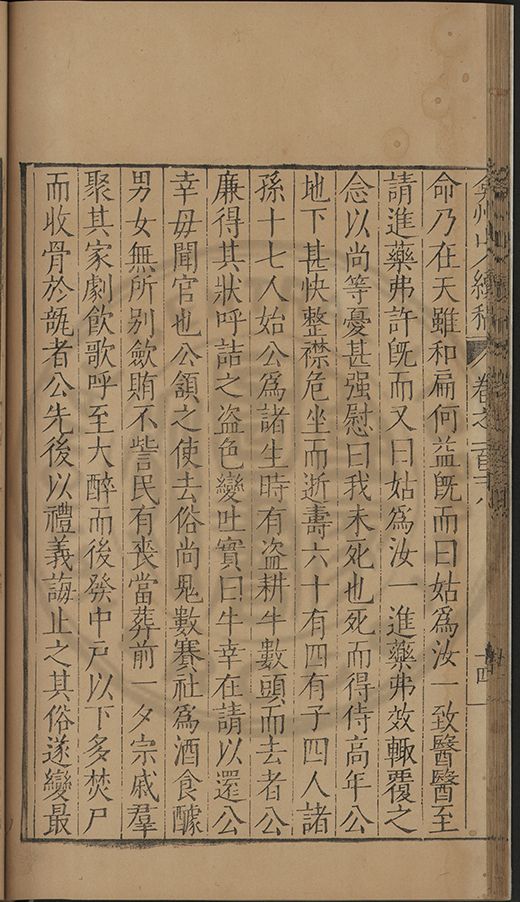 弇州山人續稿 卷之一百十八 十四
命乃在天雖和扁何益旣而曰姑爲汝一致醫醫至
請進藥弗許旣而又曰姑爲汝一進藥弗效輒覆之
念以尚等憂甚强慰曰我未死也死而得侍高年公
地下甚快整襟危坐而逝壽六十有四有子四人諸
孫十七人始公爲諸生時有盗耕牛數頭而去者公
廉得其狀呼詰之盗色變吐實曰牛幸在請以還公
幸毋聞官也公頷之使去俗尚鬼數賽社爲酒食醵
男女無所别歛賄不訾民有丧當葬前一夕宗戚羣
聚其家劇飲歌呼至大醉而後發中戸以下多焚尸
而收骨於瓻者公先後以禮義誨止之其俗遂變最